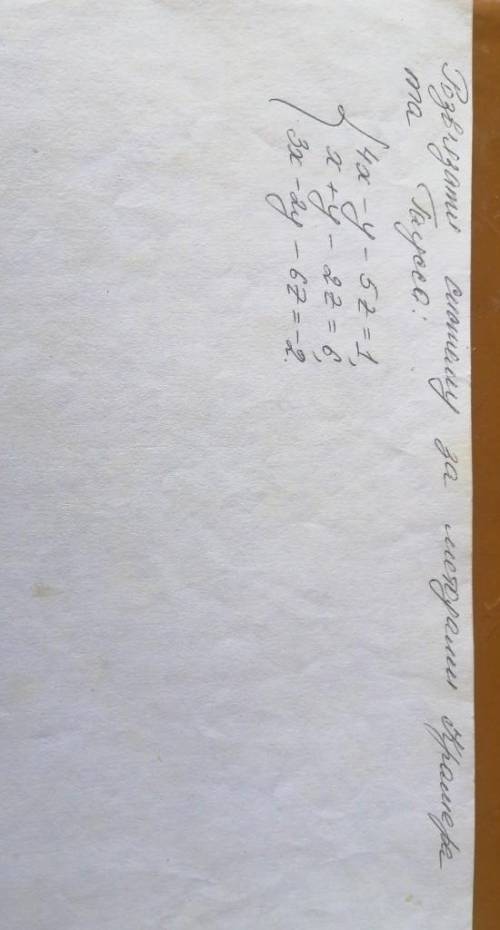 Розв'язати систему за методами Крамера
та Гаусса:
4x - y - 5z = 1,
x + y - 2z = 6,
3x - 2y - 6z = -2.